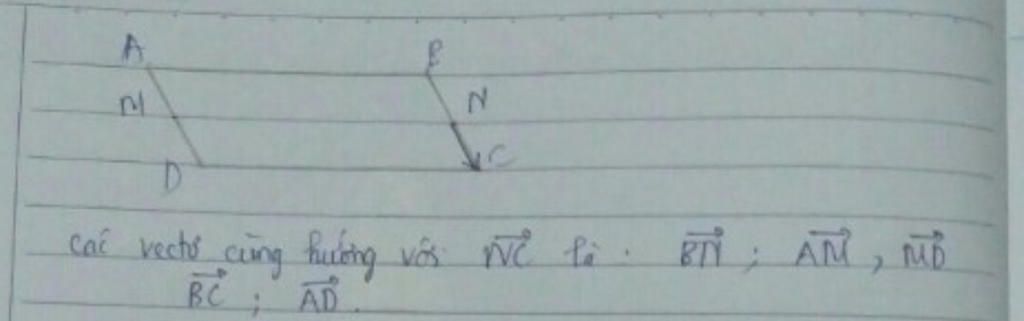 A B
M N
D C
các vectơ cùng hướng với NC là : BN ; AM , MD
BC ; AD .